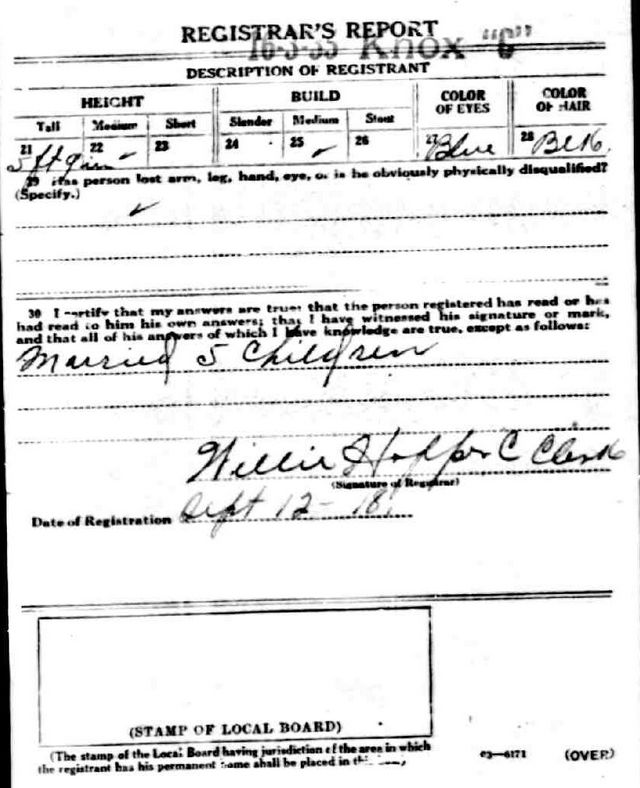 REGISTRAR'S REPORT
16-3-35 Knox "C"
DESCRIPTION OF REGISTRANT
HEIGHT BUILD COLOR OF EYES COLOR OF HAIR
Tall Medium Short Slender Medium Stout
21 22 23 24 25 26 27 Blue 28 Blk
5 ft 9 in
29 Has person lost arm, leg, hand, eye, or is he obviously physically disqualified?
(Specify.)
30 I certify that my answers are true; that the person registered has read or has
had read to him his own answers; that I have witnessed his signature or mark,
and that all of his answers of which I have knowledge are true, except as follows:
Married 5 Children
Willie Hopper C Clerk
(Signature of Registrar)
Date of Registration Sept 12-18
(STAMP OF LOCAL BOARD)
(The stamp of the Local Board having jurisdiction of the area in which
the registrant has his permanent home shall be placed in this
03-6171 (OVER)